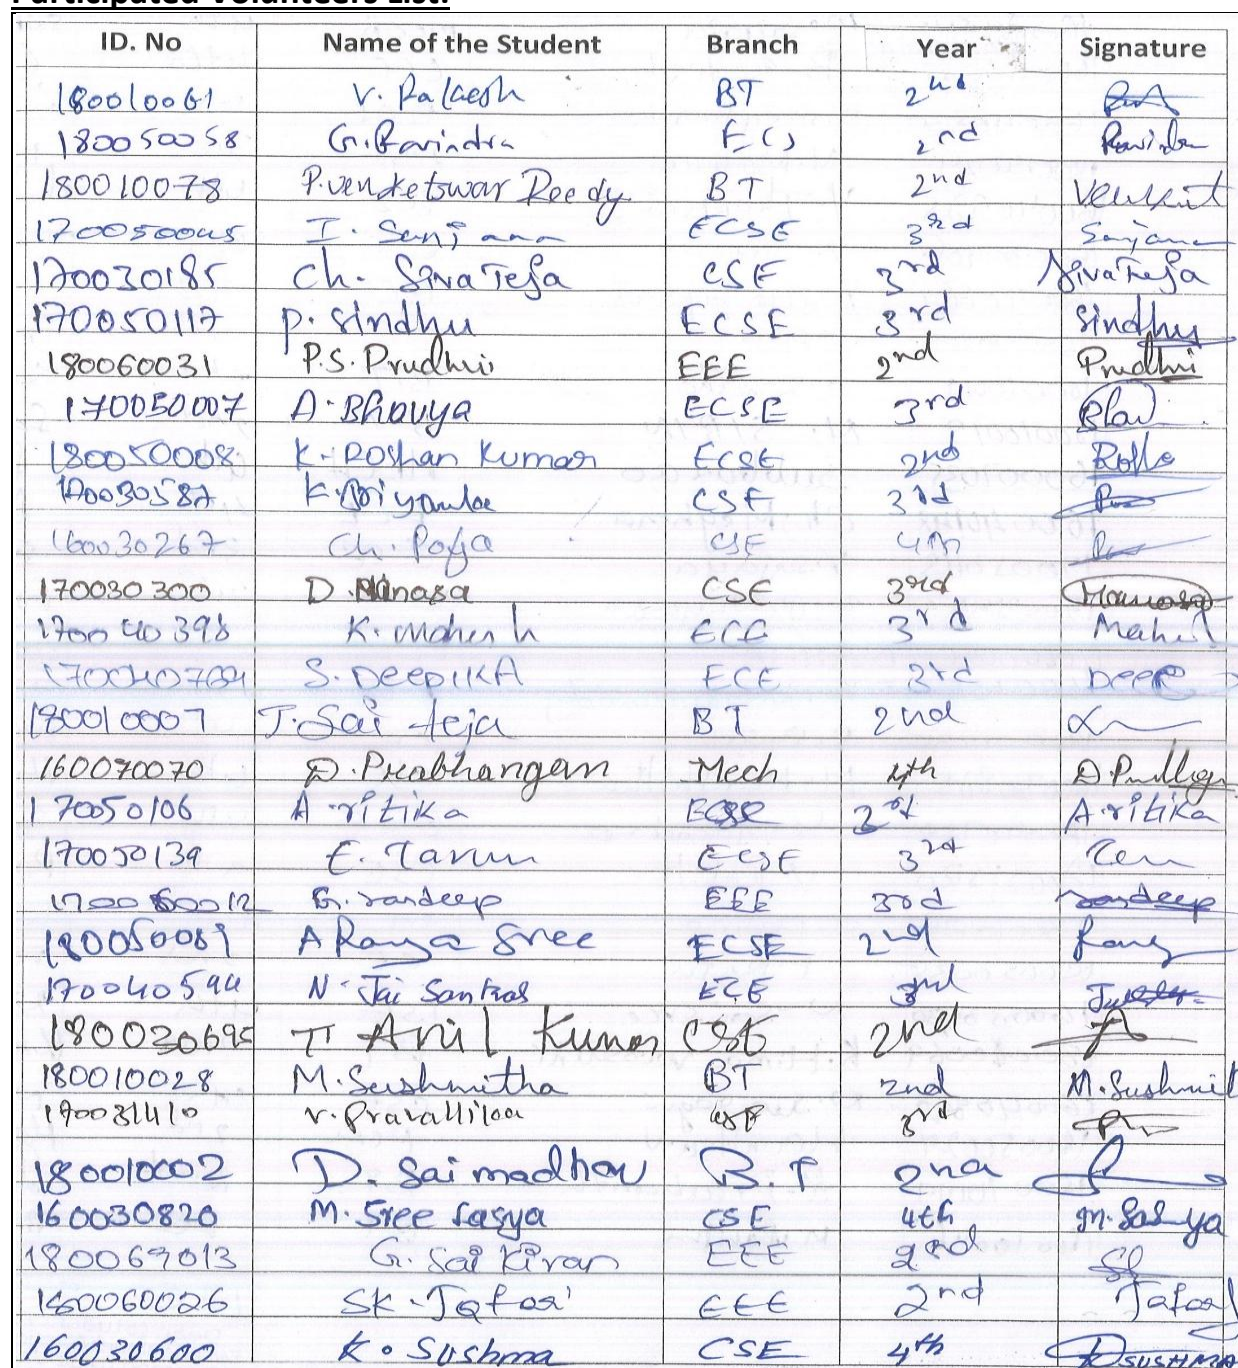 Participated Volunteers List:
ID. No Name of the Student Branch Year Signature
180010061 V. Rakesh BT 2nd
180050058 G. Ravindra ECS 2nd Ravinder
180010078 P. venketswar Reedy BT 2nd Venkat
170050045 I. Sanjana ECSE 3rd Sanjana
170030185 Ch. Siva Teja CSE 3rd Siva Teja
170050117 P. Sindhu ECSE 3rd Sindhu
180060031 P.S. Prudhvi EEE 2nd Prudhvi
170050007 A. Bhavya ECSE 3rd
180050008 K. Roshan Kumar ECSE 2nd
170030587 K. Priyanka CSE 3rd
160030267 Ch. Pooja CSE 4th
170030300 D. Manasa CSE 3rd Manasa
170040398 K. Mahesh ECE 3rd Mahesh
S. DEEPIKA ECE 3rd DEEP
180010007 J. Sai teja BT 2nd
160070070 D. Prabhangan Mech 4th
170050106 A. ritika ECSE 3rd A. ritika
170050139 E. Tarun ECSE 3rd
170060012 G. Sandeep EEE 3rd Sandeep
180050089 A Ramya Sree ECSE 2nd
170040594 N. Jai Santosh ECE 3rd
180030695 T Anil Kumar CSE 2nd
180010028 M. Sushmitha BT 2nd M. Sushmit
170031410 V. Pravallika CSE 3rd
180010002 D. Sai madhav B.T 2nd
160030820 M. Sree Lasya CSE 4th M. Lasya
180069013 G. Sai Kiran EEE 2nd
180060026 SK. Jafar EEE 2nd Jafar
160030600 K. Sushma CSE 4th SUSHMA